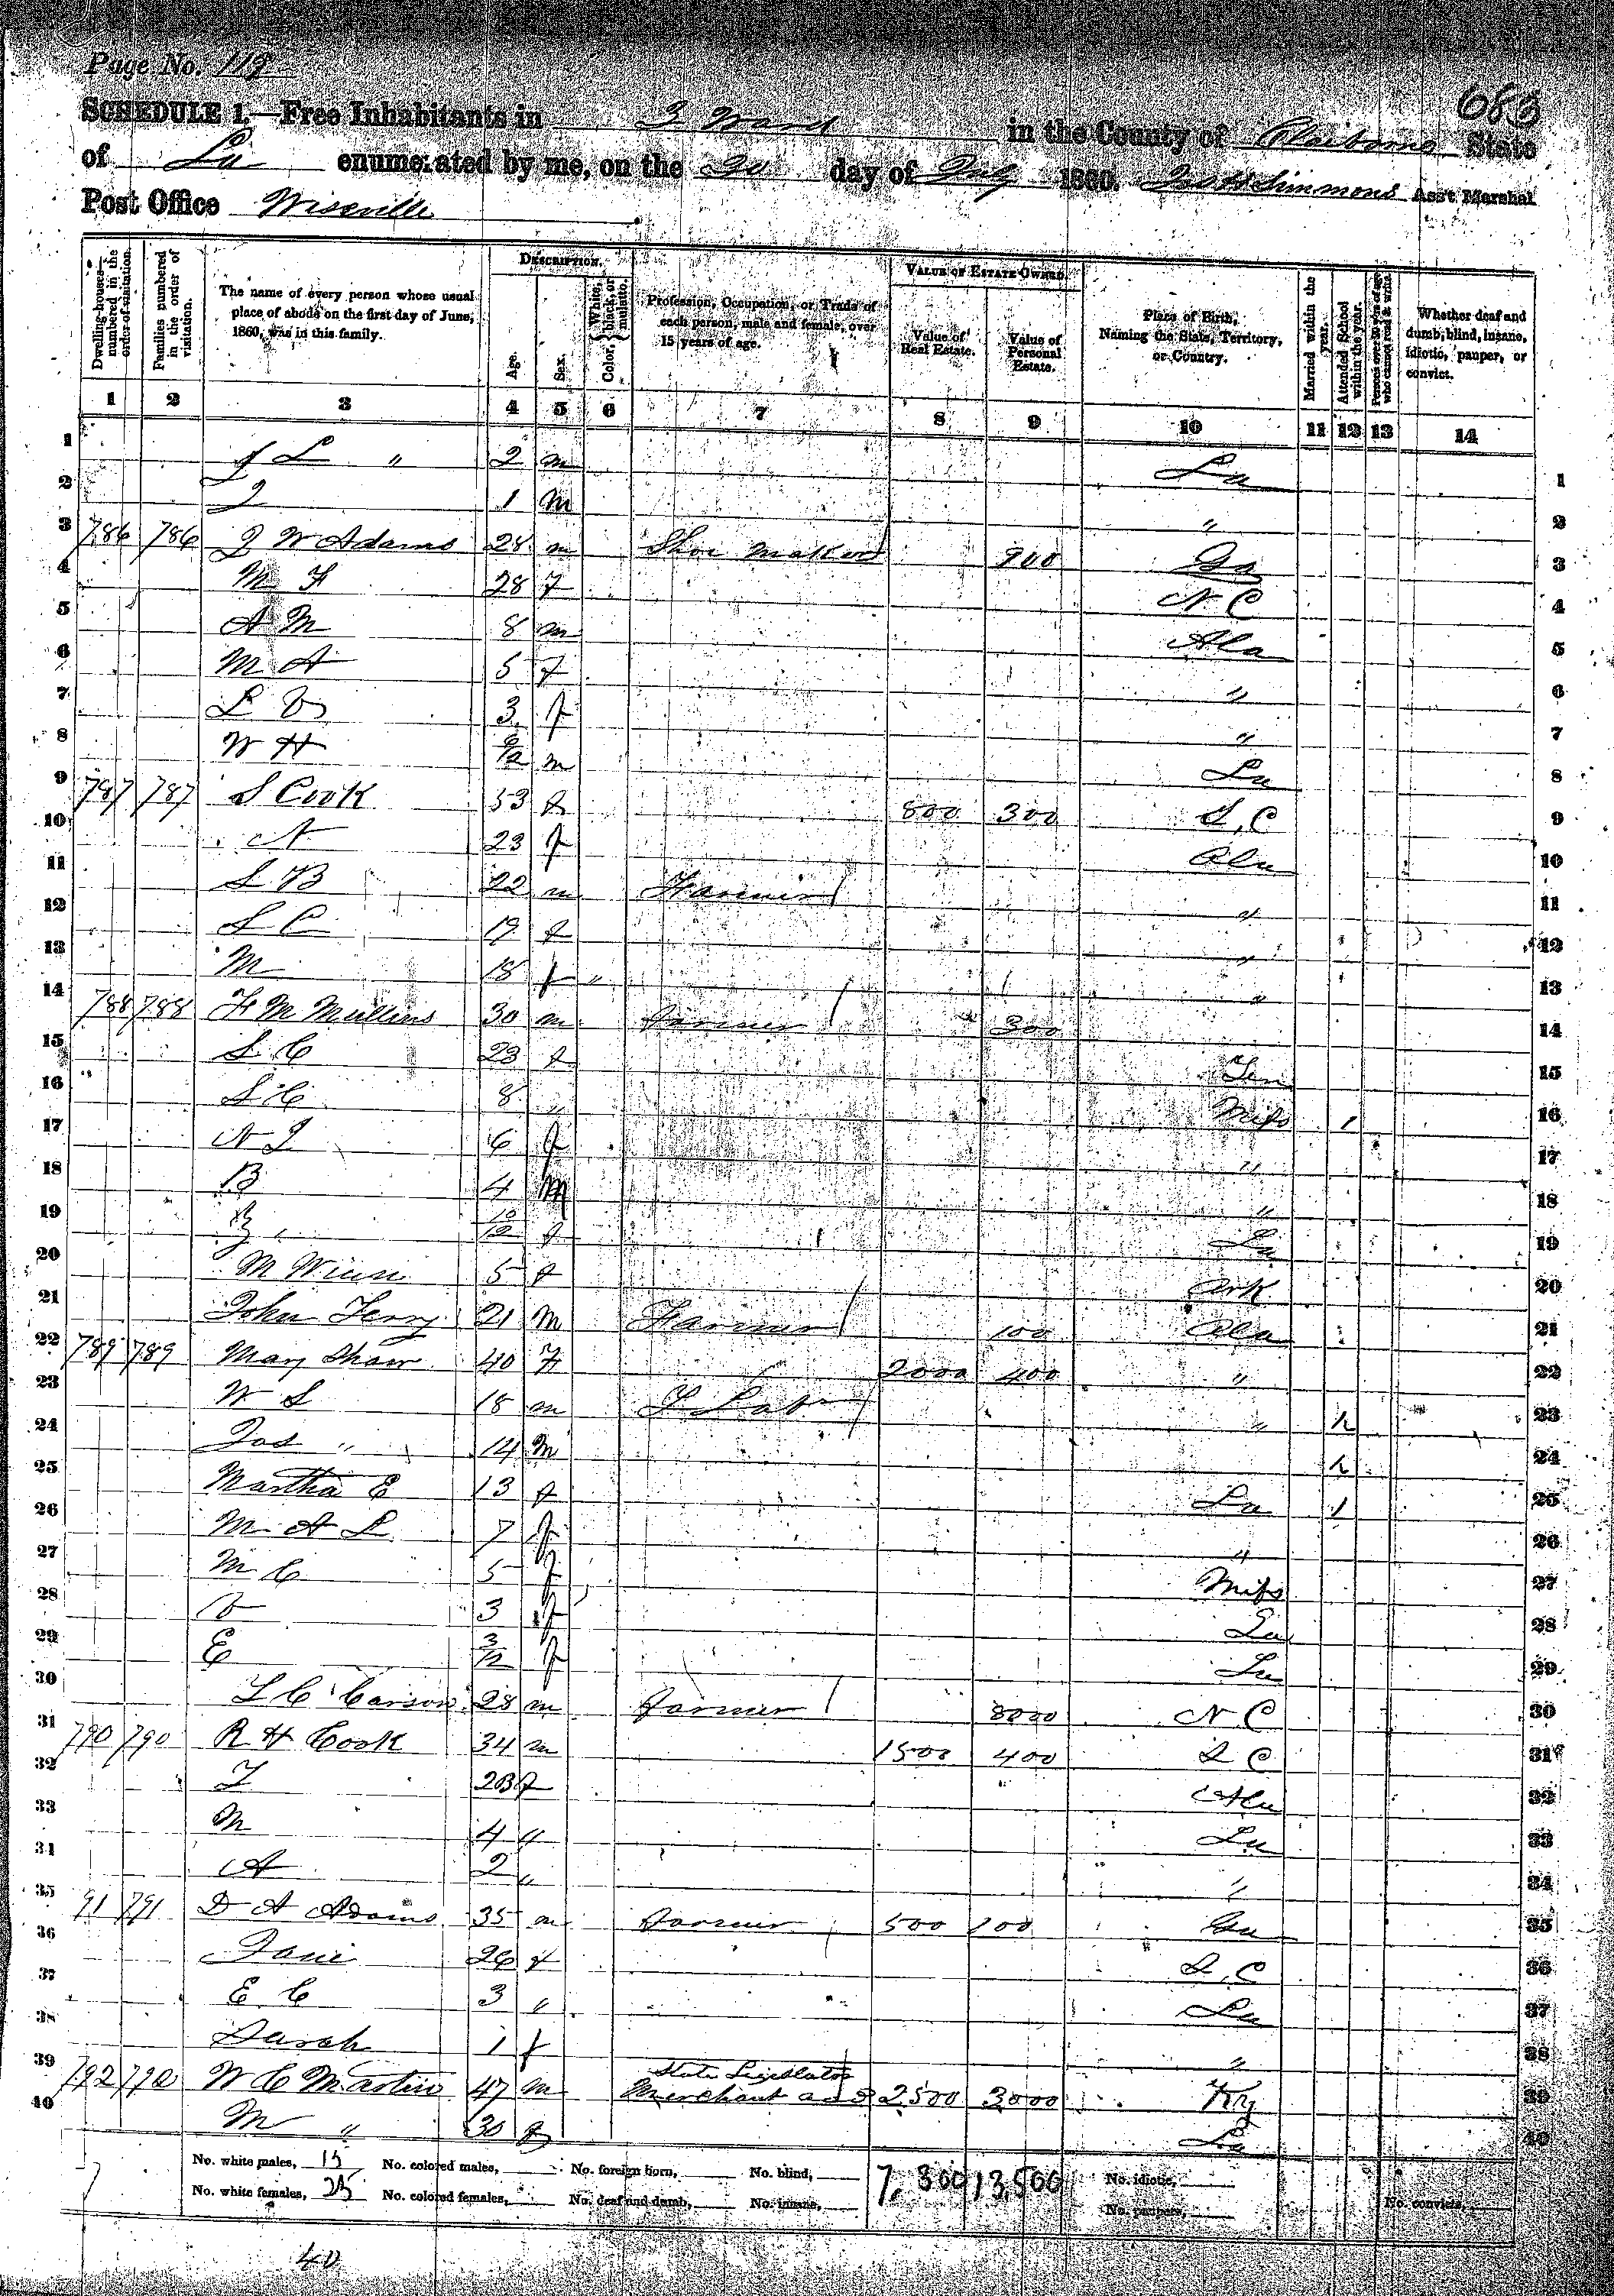 Page No. 118
683
SCHEDULE 1.—Free Inhabitants in 3 Ward in the County of Claiborne State
of La enumerated by me, on the 20 day of July 1860. Simmons Ass't Marshal
Post Office Wiseville
Dwelling-houses— numbered in the order of visitation.
Families numbered in the order of visitation.
The name of every person whose usual place of abode on the first day of June, 1860, was in this family.
DESCRIPTION.
Age.
Sex.
Color, White, black, or mulatto.
Profession, Occupation, or Trade of each person, male and female, over 15 years of age.
VALUE OF ESTATE OWNED.
Value of Real Estate.
Value of Personal Estate.
Place of Birth, Naming the State, Territory, or Country.
Married within the year.
Attended School within the year.
Persons over 20 years of age who cannot read & write.
Whether deaf and dumb, blind, insane, idiotic, pauper, or convict.
1 2 3 4 5 6 7 8 9 10 11 12 13 14
1 J L " 2 m La 1
2 J 1 M " 2
3 786 786 J W Adams 28 m Shoe Maker 900 Ga 3
4 M F 28 F N C 4
5 A M 8 m Ala 5
6 M A 5 f " 6
7 L V 3 f " 7
8 W H 6/12 m La 8
9 787 787 S Cook 53 f 800 300 S.C 9
10 N 23 f Ala 10
11 S B 22 m Farmer " 11
12 S C 19 f " 12
13 M 18 f " " 13
14 788 788 F M Mullins 30 m Farmer 300 14
15 S. C 23 f Ten 15
16 S C 8 " Miss 1 16
17 N J 6 f " 17
18 B 4 M " 18
19 10/12 f La 19
20 M 5 f Ark 20
21 John Terry 21 M Farmer 100 Ala 21
22 789 789 Mary Shaw 40 F 2000 400 " 22
23 W S 18 m F Labr " 1 23
24 Jas " 14 M 1 24
25 Martha E 13 f La 1 25
26 M A L 7 f " 26
27 M C 5 f Miss 27
28 V 3 f La 28
29 E 3/12 f La 29
30 L C Carson 28 m Farmer 8000 N C 30
31 790 790 R H Cook 34 m 1500 400 S C 31
32 T 23 f Ala 32
33 M 4 " La 33
34 A 2 " " 34
35 91 791 D A Adams 35 m Farmer 500 100 Ga 35
36 Jane 26 f S.C 36
37 E C 3 " La 37
38 Sarah 1 f " 38
State Legislator
39 792 792 W C Martin 47 m Merchant and 2500 3000 Ky 39
40 M " 30 f La 40
No. white males, 15 No. colored males, No. foreign born, No. blind, 7,300 13,500 No. idiotic,
No. white females, 25 No. colored females, No. deaf and dumb, No. insane, No. paupers, No. convicts,
40